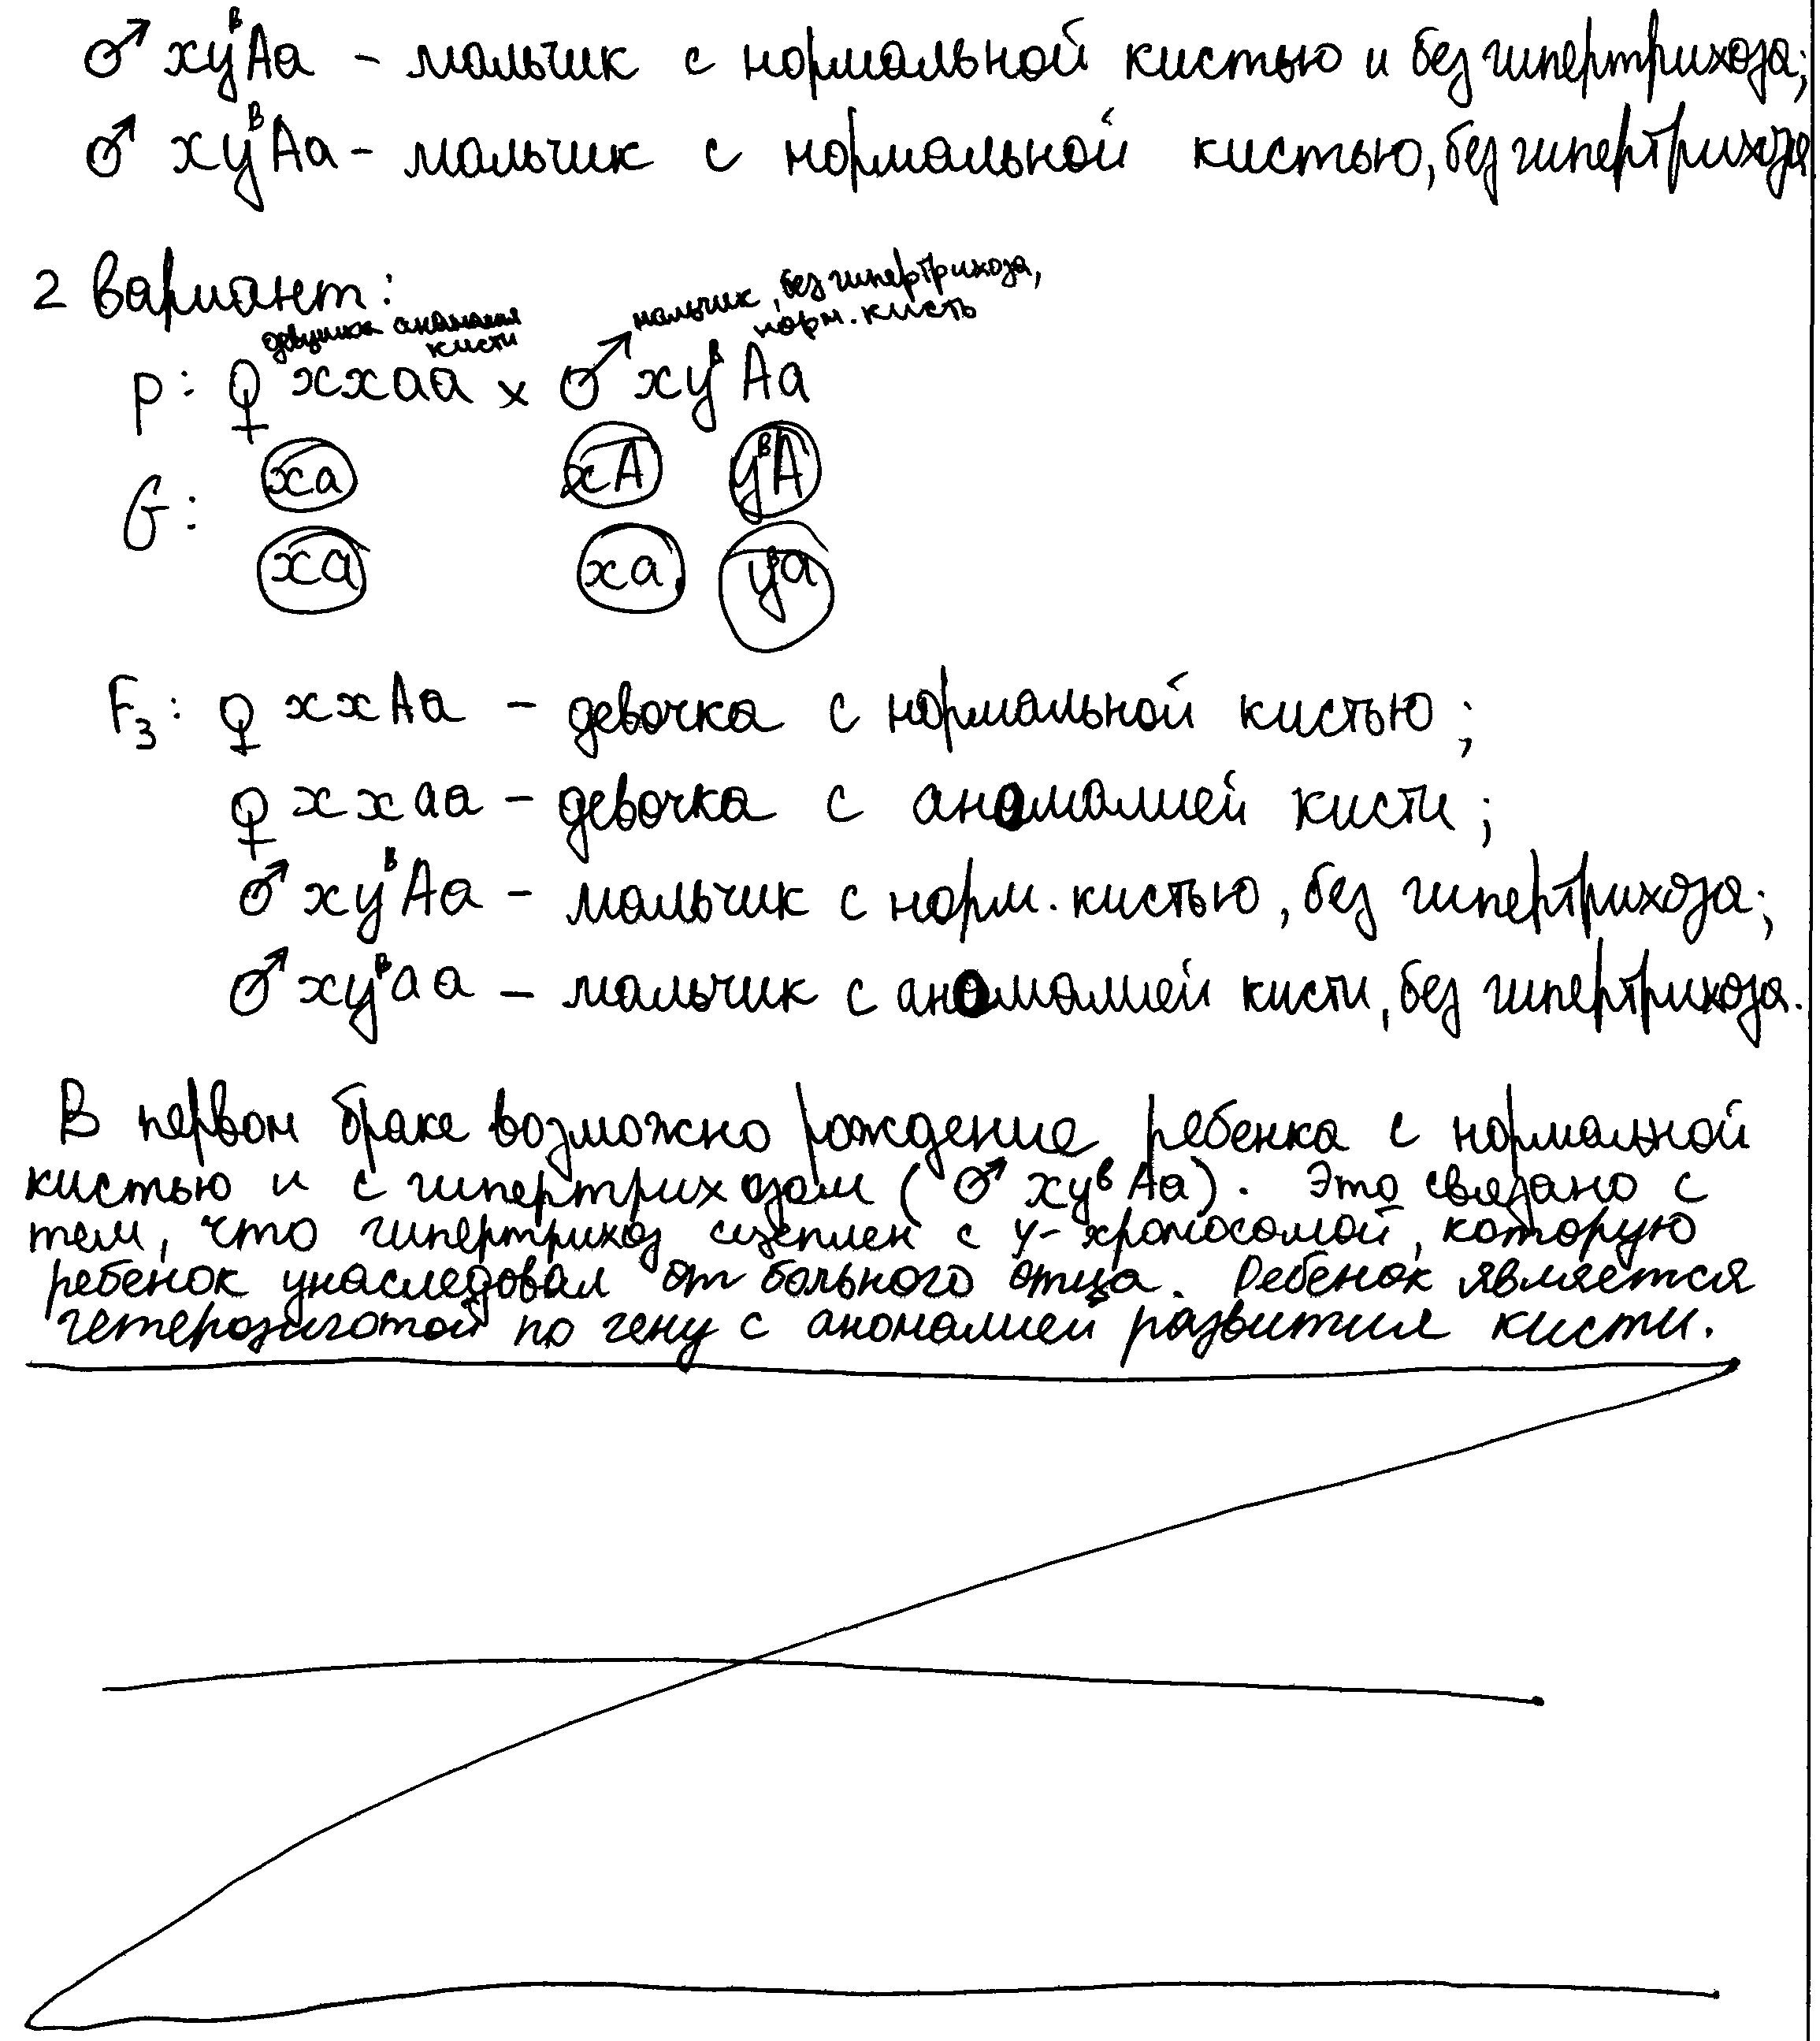 ♂ xyᴮAa – мальчик с нормальной кистью и без гипертрихоза;
♂ xyᴮAa – мальчик с нормальной кистью, без гипертрихоза
2 вариант:
девушка аномалия кисти
мальчик, без гипертрихоза, норм. кисть
P: ♀ xxaa × ♂ xyᴮ Aa
G: xa xA yᴮA
xa xa yᴮa
F₃: ♀ xxAa – девочка с нормальной кистью;
♀ xxaa – девочка с аномалией кисти;
♂ xyᴮAa – мальчик с норм. кистью, без гипертрихоза;
♂ xyᴮaa – мальчик с аномалией кисти, без гипертрихоза.
В первом браке возможно рождение ребенка с нормальной
кистью и с гипертрихозом (♂ xyᵇ Aa). Это связано с
тем, что гипертрихоз сцеплен с y-хромосомой, которую
ребенок унаследовал от больного отца. Ребенок является
гетерозиготой по гену с аномалией развития кисти.